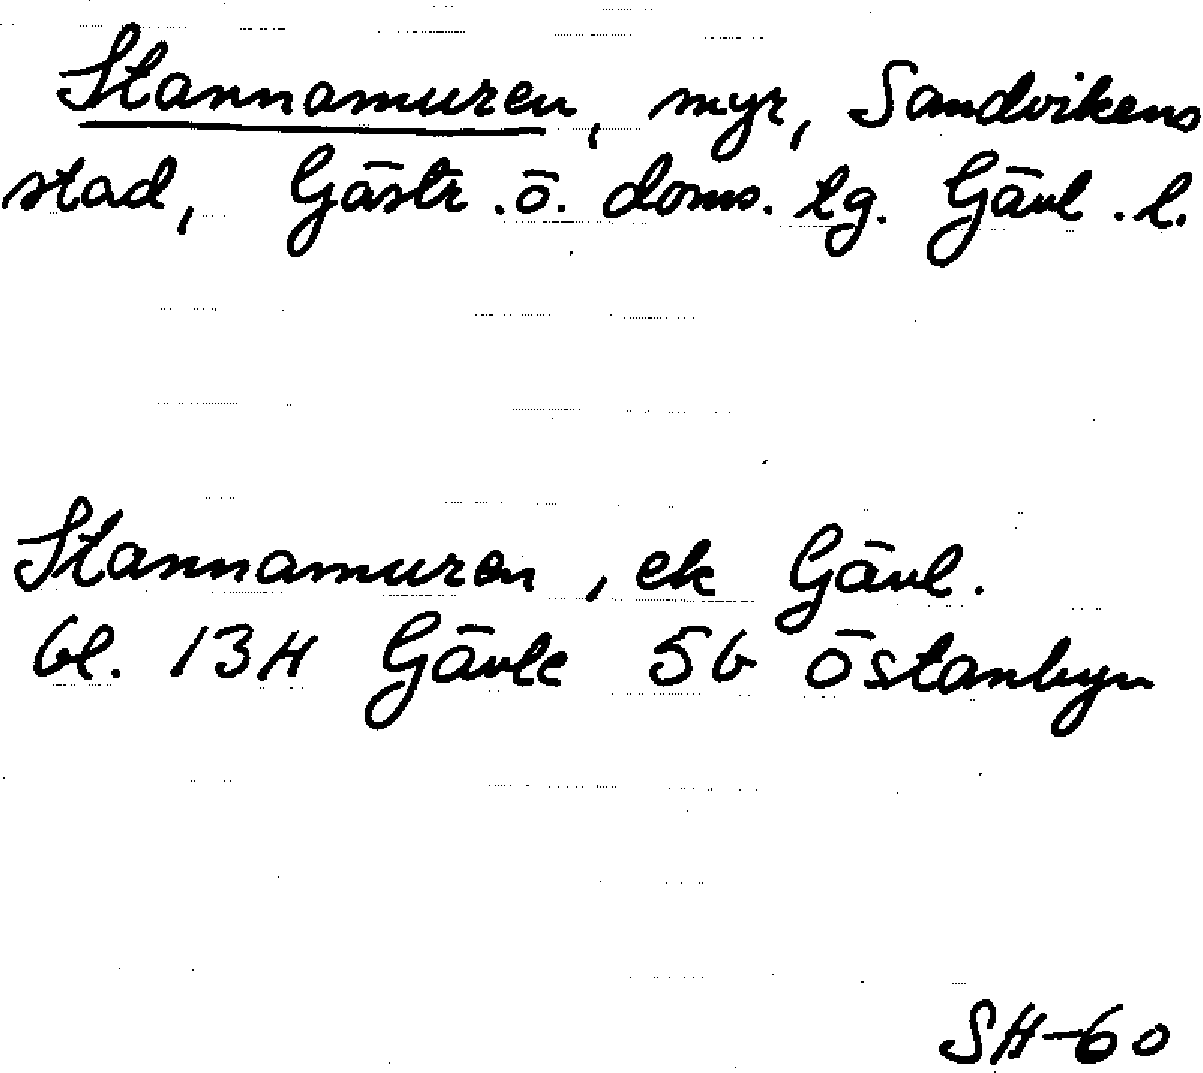 Stannamuren, myr, Sandvikens
stad, Gästr. ö. doms. lg. Gävl. l.
Stannamuren, ek Gävl.
bl. 13H Gävle 5b Östanbyn
SH-60